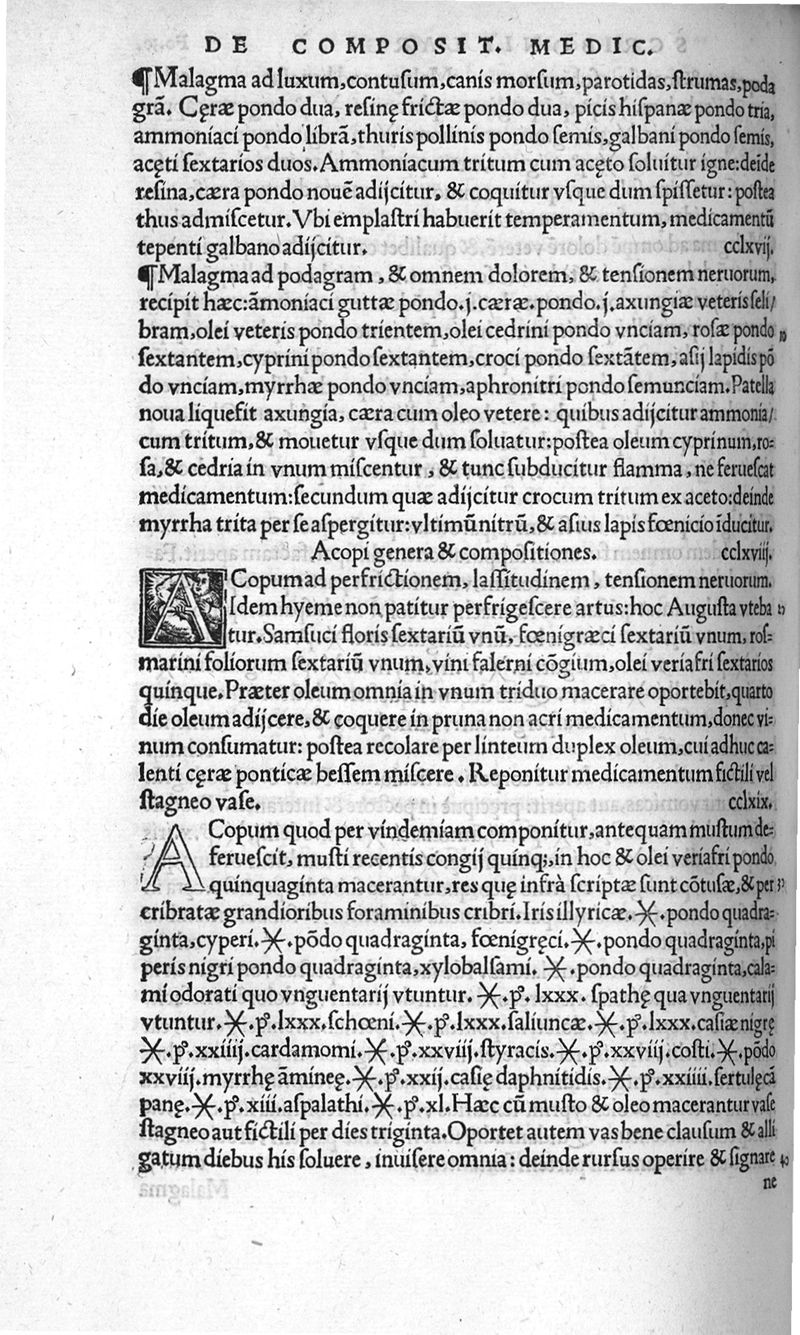 DE COMPOSIT. MEDIC.
¶Malagma ad luxum,contuſum,canis morſum,parotidas,ſtrumas,poda
grã. Cęræ pondo dua, reſinę frictæ pondo dua, picis hiſpanæ pondo tria,
ammoniaci pondo librã,thuris pollinis pondo ſemis,galbani pondo ſemis,
acęti ſextarios duos.Ammoniacum tritum cum acęto ſoluitur igne:deĩde
reſina,cæra pondo nouẽ adijcitur, & coquitur vſque dum ſpiſſetur: poſtea
thus admiſcetur.Vbi emplaſtri habuerit temperamentum, medicamentũ
tepenti galbano adijcitur. cclxvij.
¶Malagma ad podagram , & omnem dolorem, & tenſionem neruorum,
recipit hæc:ãmoniaci guttæ pondo.j.cæræ.pondo.j.axungiæ veteris ſeli/
bram,olei veteris pondo trientem,olei cedrini pondo vnciam, roſæ pondo 10
ſextantem,cyprini pondo ſextantem,croci pondo ſextãtem, aſij lapidis põ
do vnciam,myrrhæ pondo vnciam,aphronitri pondo ſemunciam.Patella
noua liquefit axungia, cæra cum oleo vetere: quibus adijcitur ammonia/
cum tritum,& mouetur vſque dum ſoluatur:poſtea oleum cyprinum,ro=
ſa,& cedria in vnum miſcentur , & tunc ſubducitur flamma, ne ferueſcat
medicamentum:ſecundum quæ adijcitur crocum tritum ex aceto:deinde
myrrha trita per ſe aſpergitur:vltimũ nitrũ,& aſius lapis fœnicio ĩducitur.
Acopi genera & compoſitiones. cclxviij.
ACopum ad perfrictionem, laſſitudinem , tenſionem neruorum.
Idem hyeme non patitur perfrigeſcere artus:hoc Auguſta vteba
tur.Samſuci floris ſextariũ vnũ, fœnigræci ſextariũ vnum, roſ=
marini foliorum ſextariũ vnum,vini falerni cõgium,olei veriafri ſextarios
quinque.Præter oleum omnia in vnum triduo macerare oportebit,quarto
die oleum adijcere,& coquere in pruna non acri medicamentum,donec vi=
num conſumatur: poſtea recolare per linteum duplex oleum,cui adhuc ca=
lenti cęræ ponticæ beſſem miſcere . Reponitur medicamentum fictili vel
ſtagneo vaſe. cclxix.
ACopum quod per vindemiam componitur,antequam muſtum de=
ferueſcit, muſti recentis congij quinq;,in hoc & olei veriafri pondo
quinquaginta macerantur,res quę infrà ſcriptæ ſunt cõtuſæ,& per
cribratæ grandioribus foraminibus cribri.Iris illyricæ.X.pondo quadra=
ginta,cyperi.X.põdo quadraginta, fœnigręci.X.pondo quadraginta,pi
peris nigri pondo quadraginta,xylobalſami. X.pondo quadraginta,cala=
mi odorati quo vnguentarij vtuntur. X.p̃. lxxx. ſpathę qua vnguentarij
vtuntur.X.p̃.lxxx.ſchœni.X.p̃.lxxx.ſaliuncæ.X.p̃.lxxx.caſiæ nigrę
X.p̃.xxiiij.cardamomi.X.p̃.xxviij.ſtyracis.X.p̃.xxvij.coſti.X.põdo
xxviij.myrrhę ãmineę.X.p̃.xxij.caſię daphnitidis.X.p̃.xxiiii.ſertulęcã
panę.X.p̃.xiii.aſpalathi.X.p̃.xl.Hæc cũ muſto & oleo macerantur vaſe
ſtagneo aut fictili per dies triginta.Oportet autem vas bene clauſum & alli
gatum diebus his ſoluere, inuiſere omnia: deinde rurſus operire & ſignare 40
ne